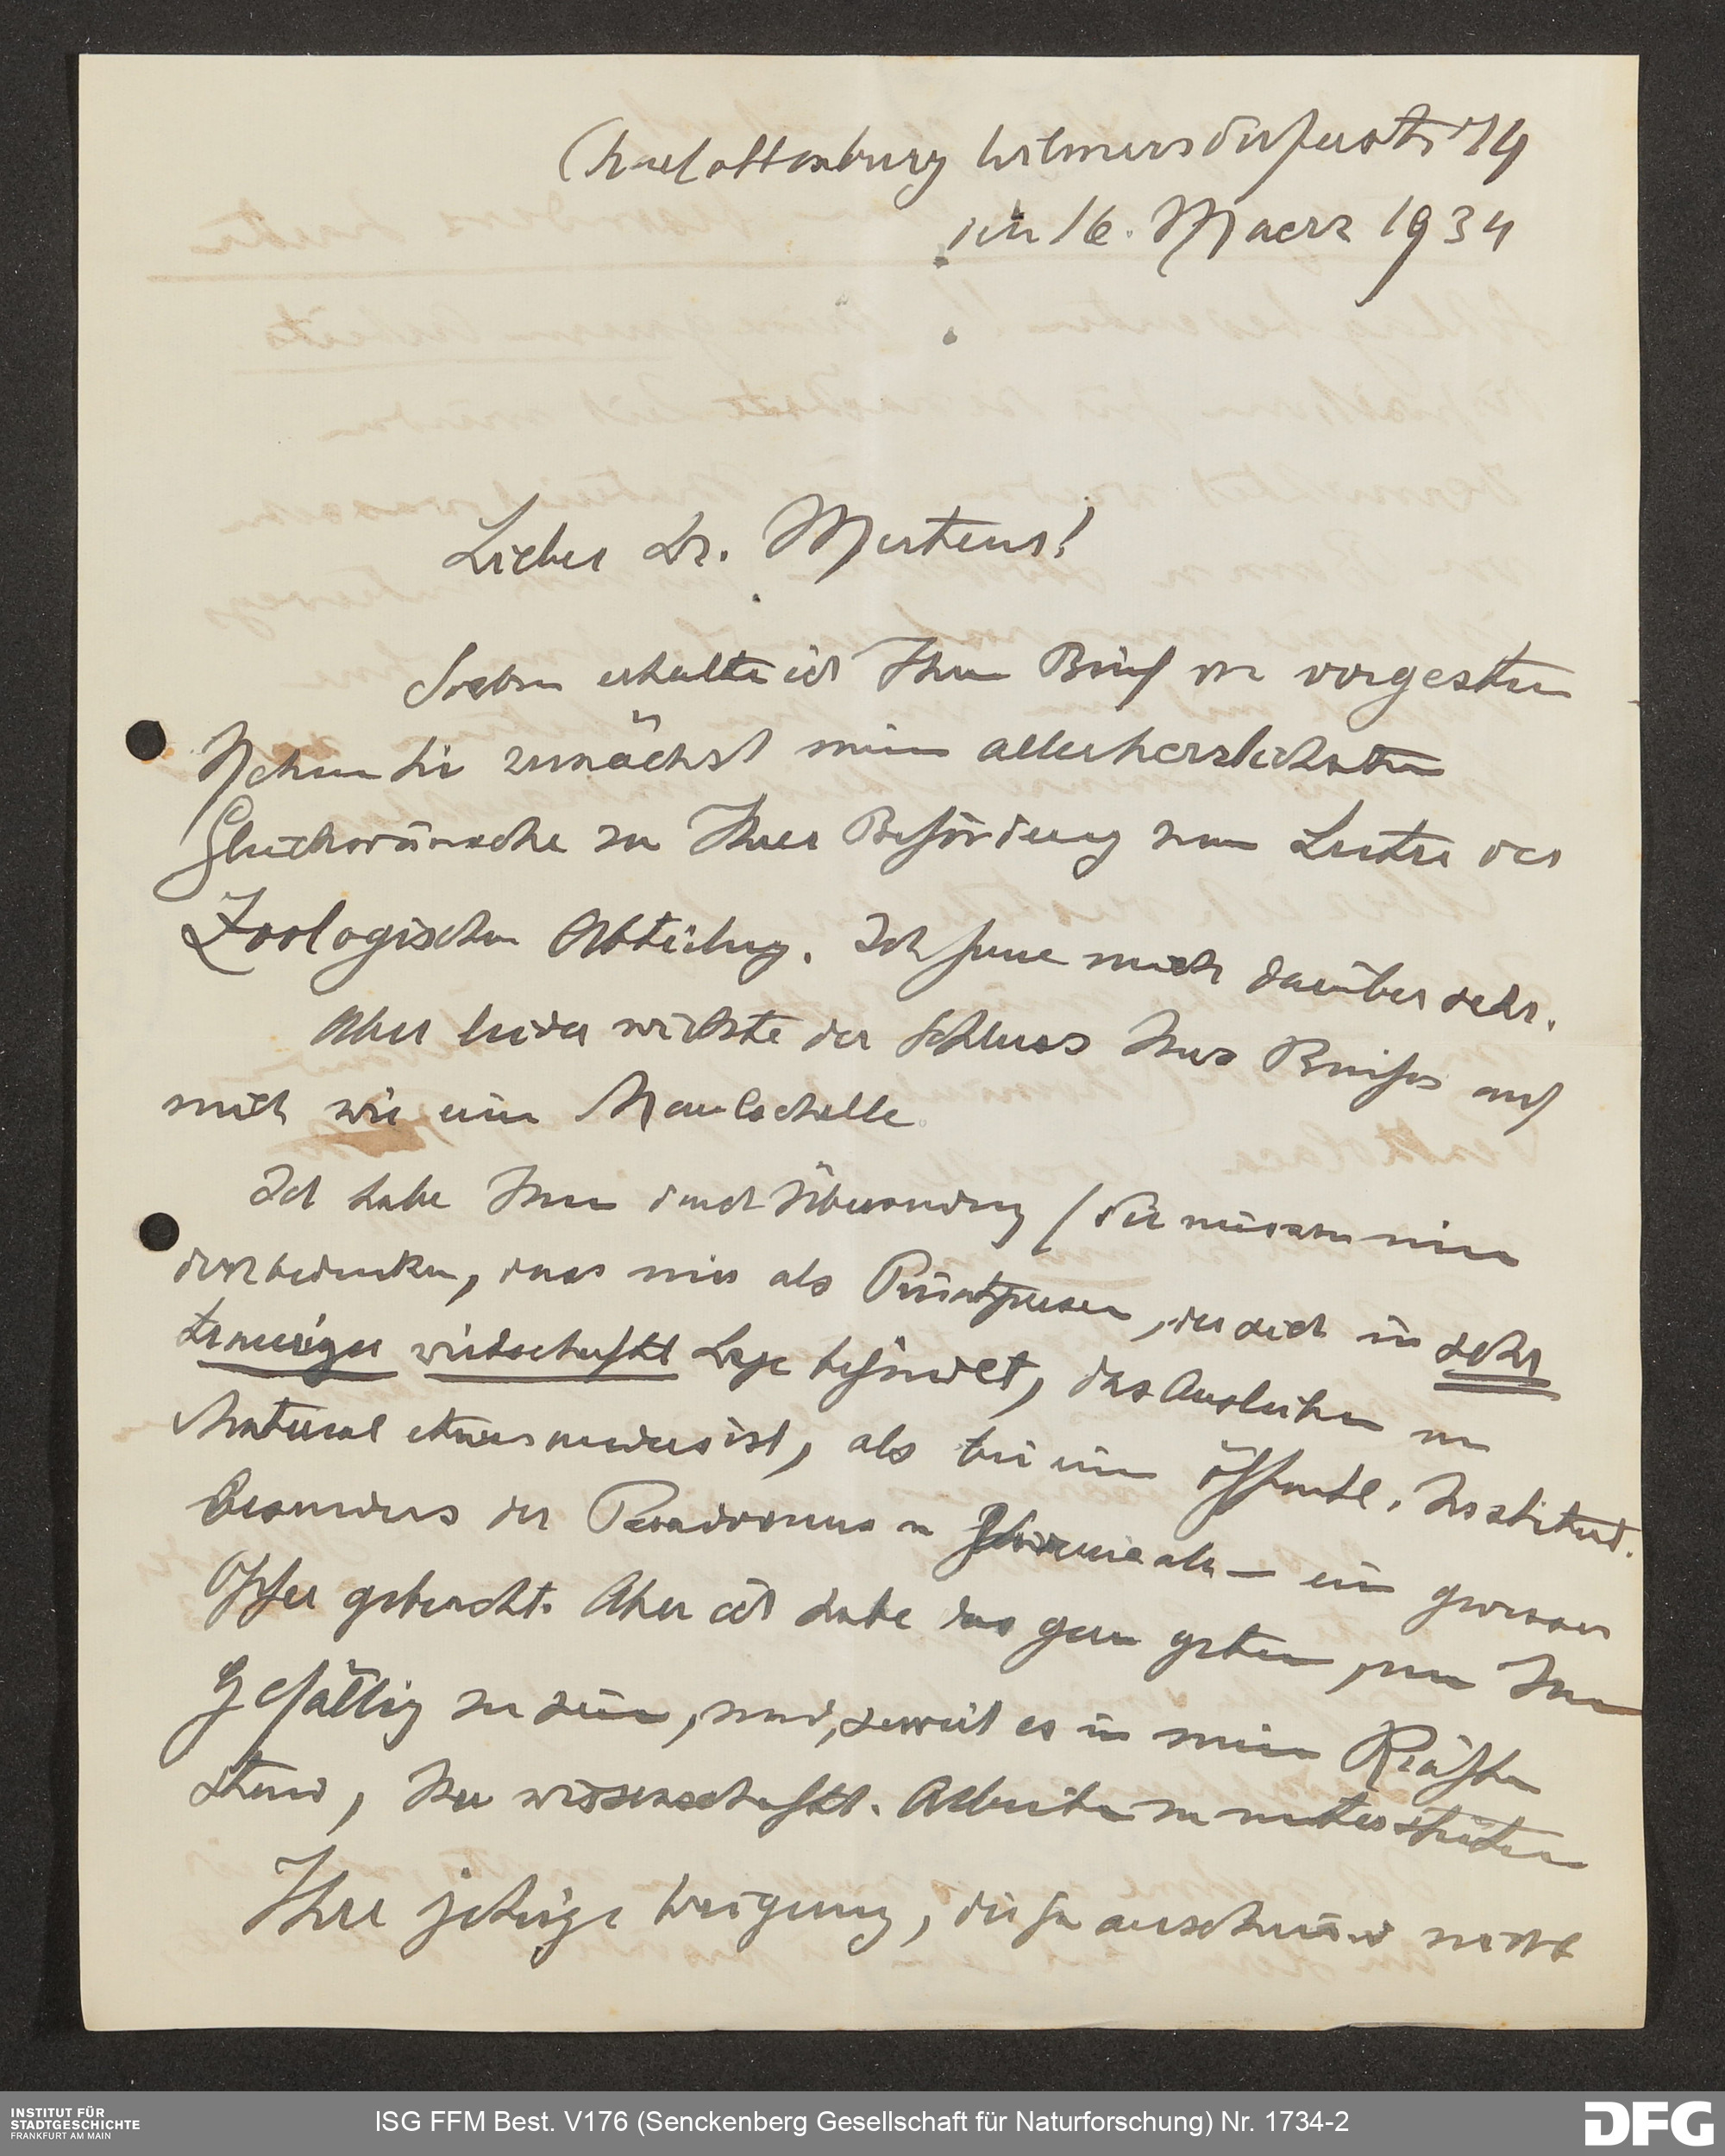 Charlottenburg Wilmersdorferstr 74
den 16. Maerz 1934
Lieber Dr. Mertens!
Soeben erhalte ich Ihren Brief von vorgestern
Nehmen Sie zunächst meine allerherzlichsten
Glückwünsche zu Ihrer Beförderung zum Leiter der
Zoologischen Abteilung. Ich freue mich darüber sehr.
Aber leider wirkte der Schluss Ihres Briefes auf
mich wie eine Maulschelle.
Ich habe Ihnen durch Übersendung (Sie müssen immer
bedenken, dass mir als Privatperson, der sich in sehr
trauriger wirtschaftl Lage befindet, das Ausleihen von
Material etwas anderes ist, als bei einem öffentl. Institut.
Besonders der — ein grosses
Opfer gebracht. Aber ich habe das gern getan, um Ihnen
Gefällig zu sein, und, soweit es in meinen Kräften
stand, Ihre wissenschaftl. Arbeiten zu unterstützen
Ihre jetzige Weigerung, die ja anscheinend nicht
INSTITUT FÜR
STADTGESCHICHTE
FRANKFURT AM MAIN
ISG FFM Best. V176 (Senckenberg Gesellschaft für Naturforschung) Nr. 1734-2
DFG